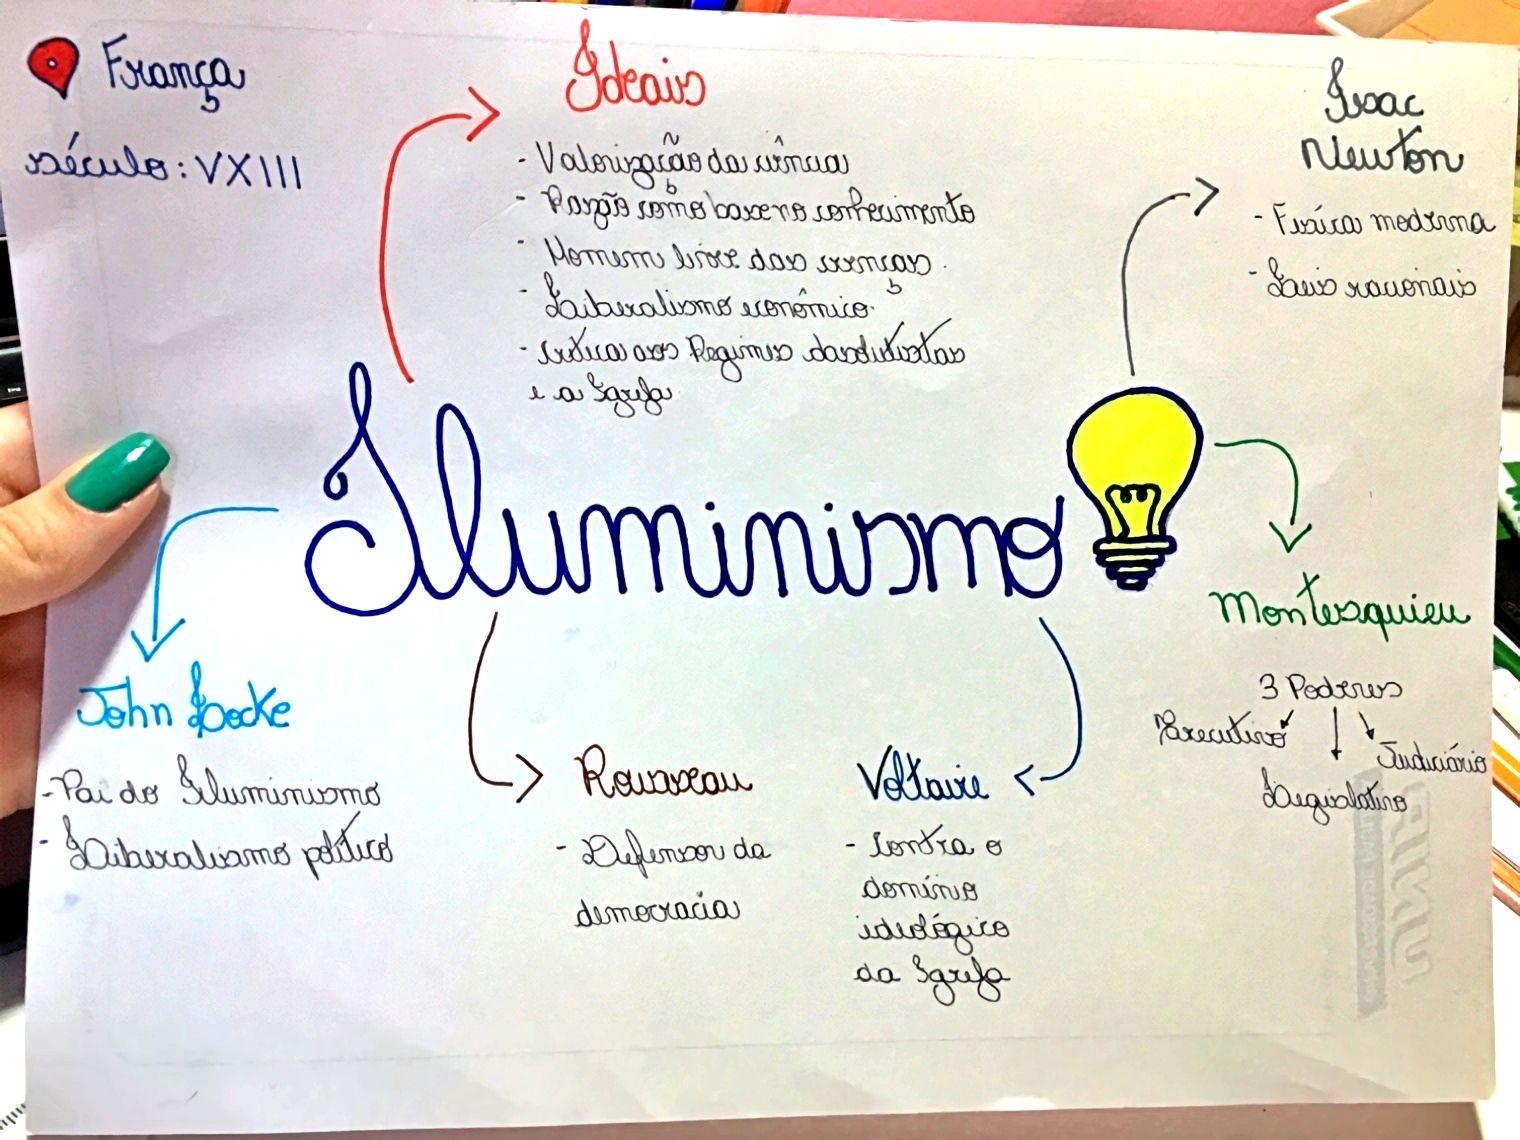 França
século: VXIII
Ideais
- Valorização da ciência
- Razão como base no conhecimento
- Homem livre das crenças.
- Liberalismo econômico.
- Crítica aos Regimes
e a Igreja
Isac
Newton
- Física moderna
- Leis racionais
Iluminismo
Montesquieu
3 Poderes
Executivo
Judiciário
Legislativo
John Locke
- Pai do Iluminismo
- Liberalismo político
Rousseau
- Defensor da
democracia
Voltaire
- Contra o
domínio
ideológico
da Igreja